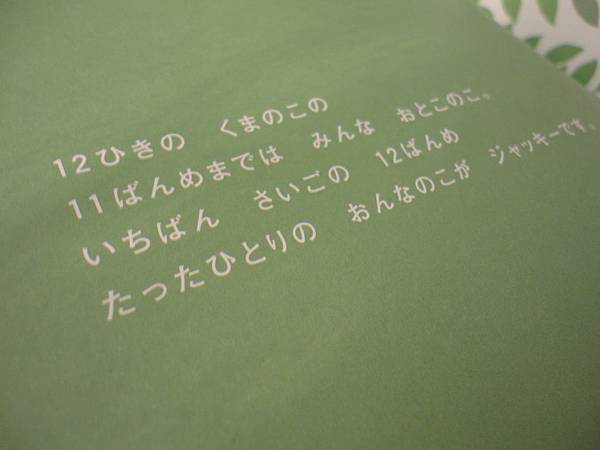 12ひきの くまのこの
11ばんめまでは みんな おとこのこ。
いちばん さいごの 12ばんめ
たったひとりの おんなのこが ジャッキーです。